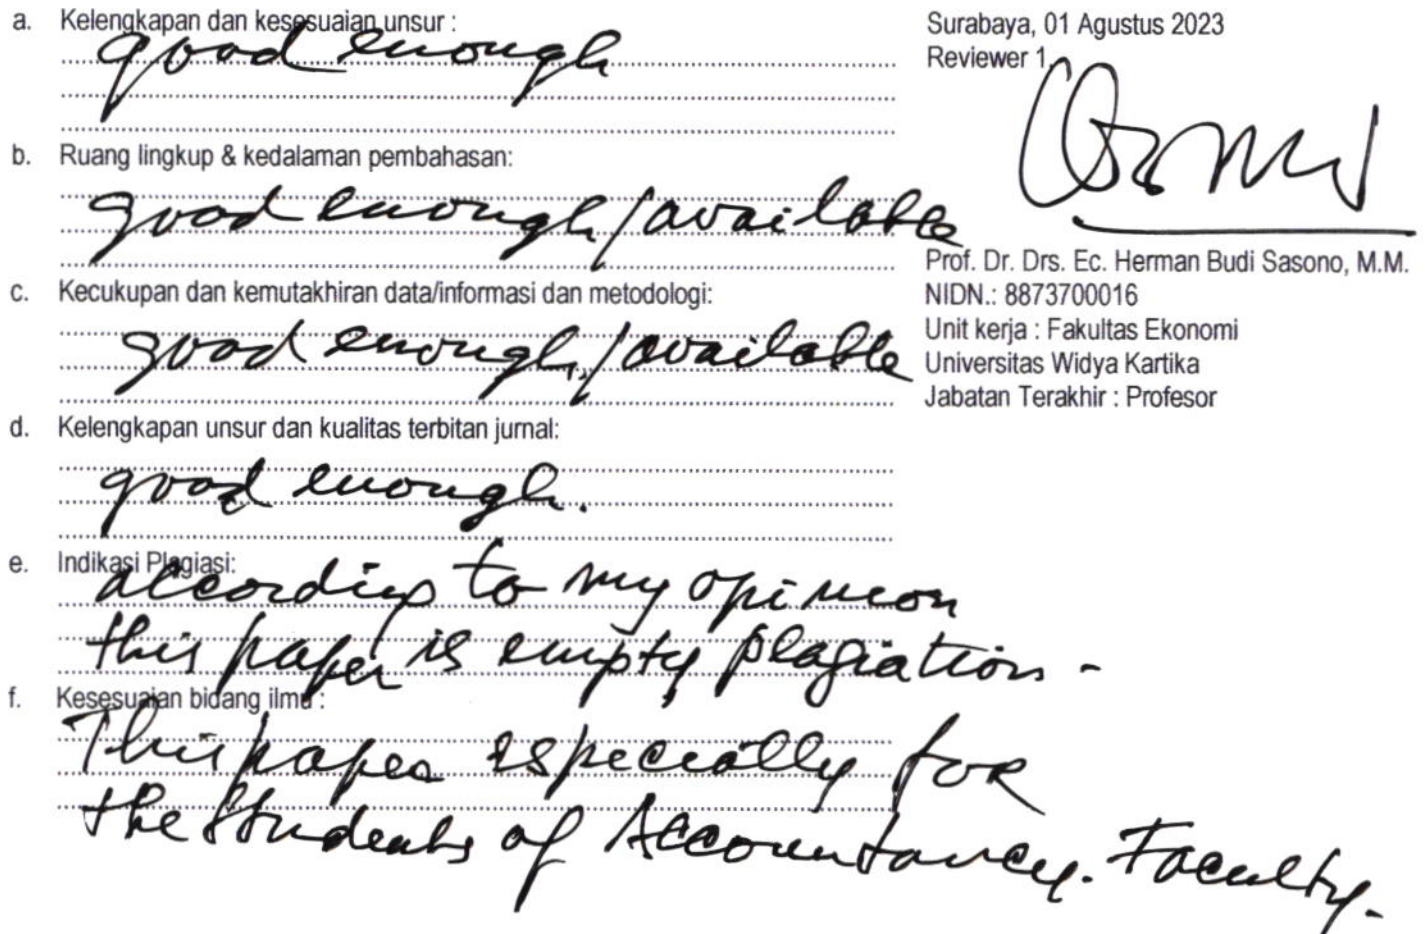 a. Kelengkapan dan kesesuaian unsur :
good enough
b. Ruang lingkup & kedalaman pembahasan:
good enough/available
c. Kecukupan dan kemutakhiran data/informasi dan metodologi:
good enough/available
d. Kelengkapan unsur dan kualitas terbitan jurnal:
good enough.
e. Indikasi Plagiasi:
according to my opinion
this paper is empty plagiation -
f. Kesesuaian bidang ilmu :
This paper especially for
the students of Accountancy. Faculty.
Surabaya, 01 Agustus 2023
Reviewer 1,
Prof. Dr. Drs. Ec. Herman Budi Sasono, M.M.
NIDN.: 8873700016
Unit kerja : Fakultas Ekonomi
Universitas Widya Kartika
Jabatan Terakhir : Profesor